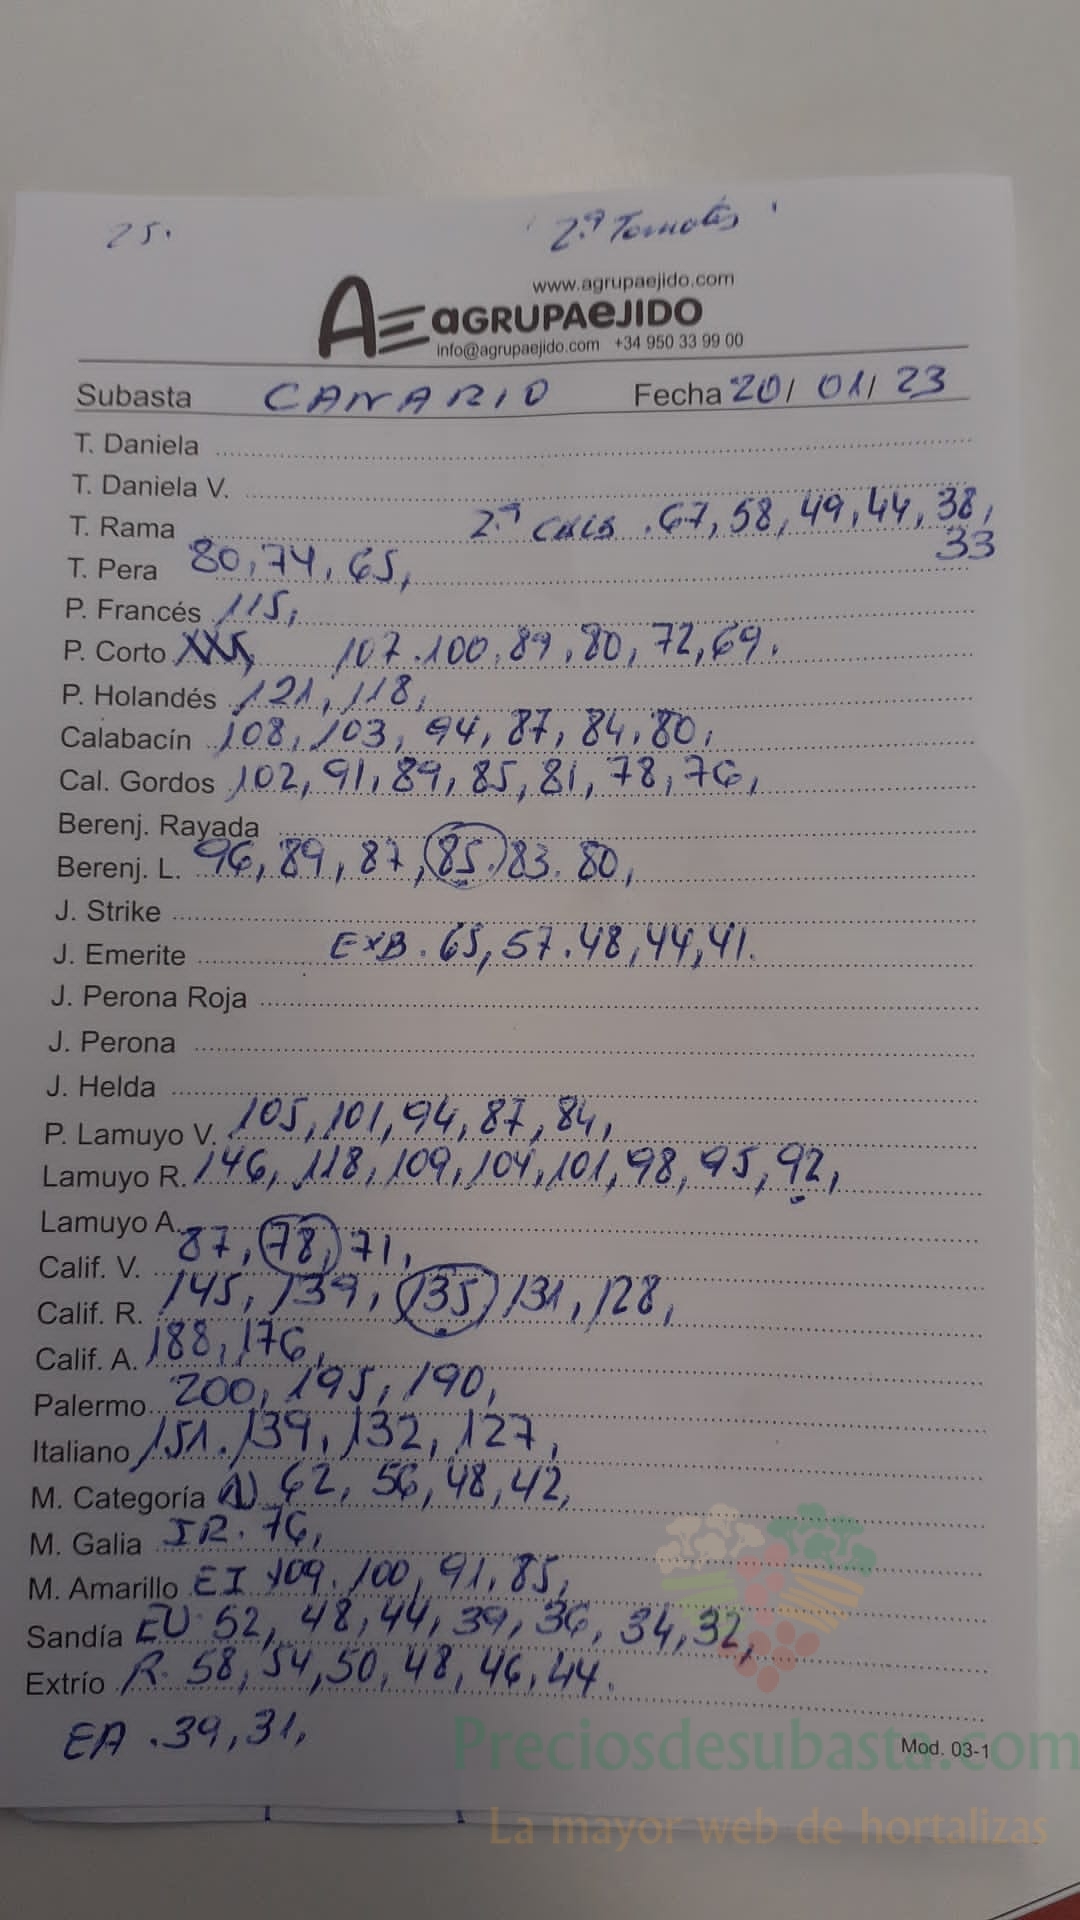 25. 2.ª Tomates
www.agrupaejido.com
AE aGRUPAeJIDO
info@agrupaejido.com +34 950 33 99 00
Subasta CANARIO Fecha 20/ 01/ 23
T. Daniela
T. Daniela V.
T. Rama 2.ª 67, 58, 49, 44, 38,
33
T. Pera 80, 74, 65,
P. Francés 115,
P. Corto 107. 100, 89, 80, 72, 69.
P. Holandés 121, 118,
Calabacín 108, 103, 94, 87, 84, 80,
Cal. Gordos 102, 91, 89, 85, 81, 78, 76,
Berenj. Rayada
Berenj. L. 96, 89, 87, 85. 83. 80,
J. Strike
J. Emerite EXB. 65, 57. 48, 44, 41.
J. Perona Roja
J. Perona
J. Helda
P. Lamuyo V. 105, 101, 94, 87, 84,
Lamuyo R. 146, 118, 109, 104, 101, 98, 95, 92,
Lamuyo A.
Calif. V. 87, 78, 71,
Calif. R. 145, 139, 135 131, 128,
Calif. A. 188, 176,
Palermo 200, 195, 190,
Italiano 151. 139, 132, 127,
M. Categoría 62, 56, 48, 42,
M. Galia IR. 76,
M. Amarillo EI 109. 100, 91, 85,
Sandía EU 52, 48, 44, 39, 36, 34, 32,
Extrío R. 58, 54, 50, 48, 46, 44.
EA. 39, 31,
Mod. 03-1
Preciosdesubasta.com
La mayor web de hortalizas